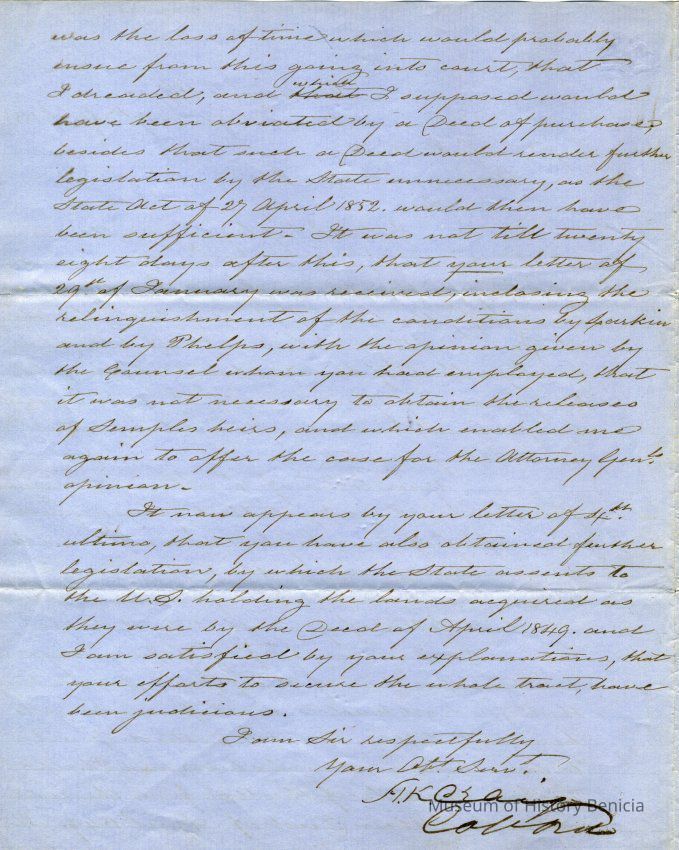 was the loss of time which would probably
insue from this going into court, that
I dreaded, and that which I supposed would
have been obviated by a Deed of purchase,
besides that such a Deed would render further
legislation by the State unnecessary, as the
State Act of 27 April 1852. would then have
been sufficient. It was not till twenty
eight days after this, that your letter of
29th of January was received, inclosing the
relinquishment of the conditions by Larkin
and by Phelps, with the opinion given by
the Counsel whom you had employed, that
it was not necessary to obtain the releases
of Semples heirs, and which enabled me
again to offer the case for the Attorney Genls.
opinion.
It now appears by your letter of 4th.
ultimo, that you have also obtained further
legislation, by which the State assents to
the U.S. holding the lands acquired as
they were by the Deed of April 1849. and
I am satisfied by your explanations, that
your efforts to secure the whole tract, have
been judicious.
I am Sir respectfully
Your Obt. Servt.
H K Craig
Col Ord
Museum of History Benicia